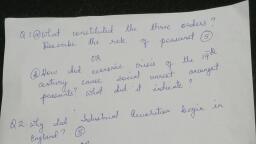 Q:1 @ What constituted the three orders?
Describe the role of peasant ⑤
OR
⑥ How did economic crisis of the 14th
century cause social unrest amongst
peasants? What did it indicate?
Q.2 Why did Industrial Revolution begin in
England? ⑤
OR